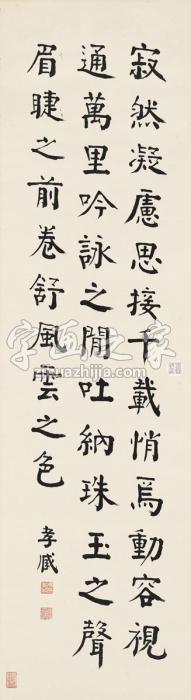 寂然凝慮思接千載悄焉動容視
通萬里吟詠之間吐納珠玉之聲
眉睫之前卷舒風雲之色
孝臧
字画之家
zhuazhijia.com